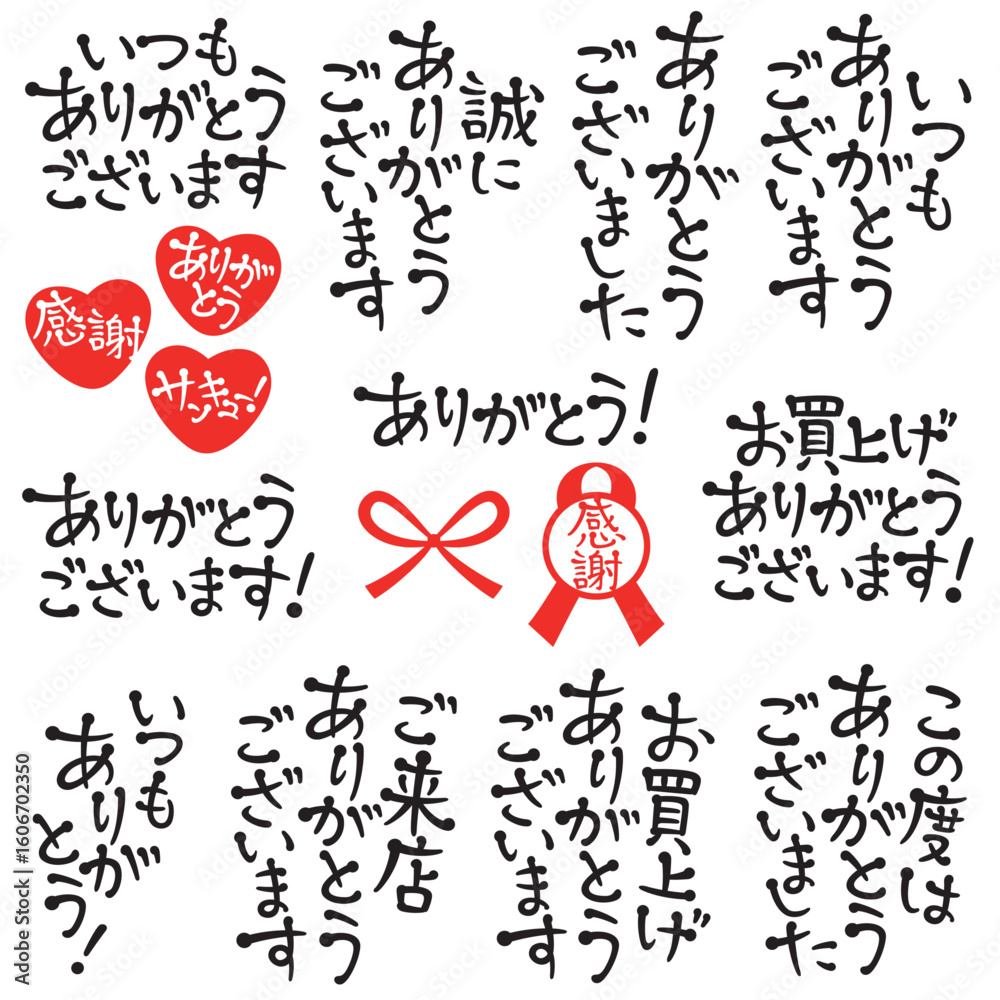 いつも
ありがとう
ございます
誠に
ありがとう
ございます
ありがとう
ございました
いつも
ありがとう
ございます
ありが
とう
感謝
サンキュー!
ありがとう!
お買上げ
ありがとう
ございます!
ありがとう
ございます!
感謝
いつも
ありが
とう!
ご来店
ありがとう
ございます
お買上げ
ありがとう
ございます
この度は
ありがとう
ございました
Adobe Stock | #1606702350